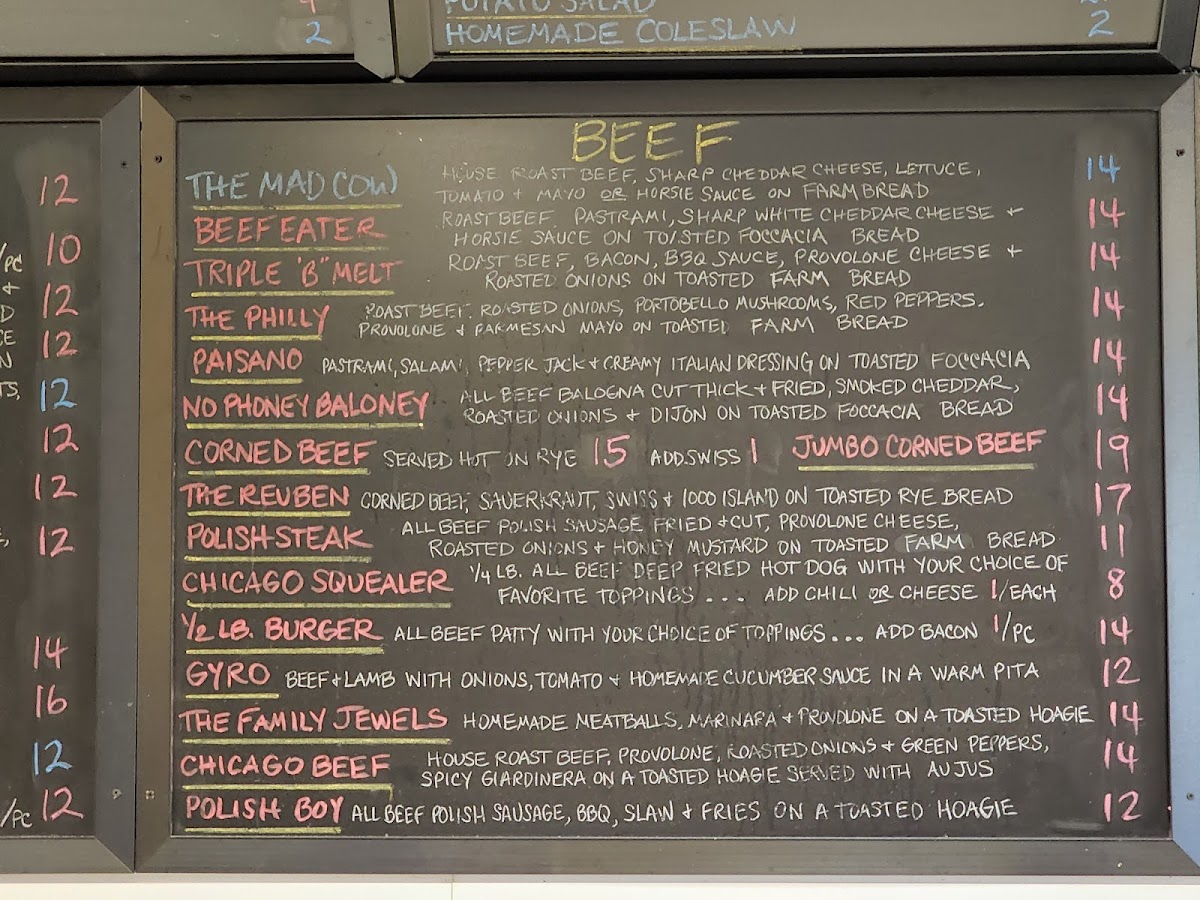 POTATO SALAD
2
HOMEMADE COLESLAW 2
12
/PC 10
+
D 12
CE
N 12
TS, 12
12
12
12
14
16
12
/PC 12
BEEF
THE MAD COW HOUSE ROAST BEEF, SHARP CHEDDAR CHEESE, LETTUCE, 14
TOMATO + MAYO OR HORSIE SAUCE ON FARM BREAD
BEEF EATER ROAST BEEF, PASTRAMI, SHARP WHITE CHEDDAR CHEESE + 14
HORSIE SAUCE ON TOASTED FOCCACIA BREAD
TRIPLE "B" MELT ROAST BEEF, BACON, BBQ SAUCE, PROVOLONE CHEESE + 14
ROASTED ONIONS ON TOASTED FARM BREAD
THE PHILLY ROAST BEEF, ROASTED ONIONS, PORTOBELLO MUSHROOMS, RED PEPPERS. 14
PROVOLONE + PARMESAN MAYO ON TOASTED FARM BREAD
PAISANO PASTRAMI, SALAMI, PEPPER JACK + CREAMY ITALIAN DRESSING ON TOASTED FOCCACIA 14
NO PHONEY BALONEY ALL BEEF BALOGNA CUT THICK + FRIED, SMOKED CHEDDAR, 14
ROASTED ONIONS + DIJON ON TOASTED FOCCACIA BREAD
CORNED BEEF SERVED HOT ON RYE 15 ADD SWISS 1 JUMBO CORNED BEEF 19
THE REUBEN CORNED BEEF, SAUERKRAUT, SWISS + 1000 ISLAND ON TOASTED RYE BREAD 17
POLISH STEAK ALL BEEF POLISH SAUSAGE FRIED + CUT, PROVOLONE CHEESE, 11
ROASTED ONIONS + HONEY MUSTARD ON TOASTED FARM BREAD
CHICAGO SQUEALER 1/4 LB. ALL BEEF DEEP FRIED HOT DOG WITH YOUR CHOICE OF 8
FAVORITE TOPPINGS... ADD CHILI OR CHEESE 1/EACH
1/2 LB. BURGER ALL BEEF PATTY WITH YOUR CHOICE OF TOPPINGS... ADD BACON 1/PC 14
GYRO BEEF + LAMB WITH ONIONS, TOMATO + HOMEMADE CUCUMBER SAUCE IN A WARM PITA 12
THE FAMILY JEWELS HOMEMADE MEATBALLS, MARINARA + PROVOLONE ON A TOASTED HOAGIE 14
CHICAGO BEEF HOUSE ROAST BEEF, PROVOLONE, ROASTED ONIONS + GREEN PEPPERS, 14
SPICY GIARDINERA ON A TOASTED HOAGIE SERVED WITH AU JUS
POLISH BOY ALL BEEF POLISH SAUSAGE, BBQ, SLAW + FRIES ON A TOASTED HOAGIE 12